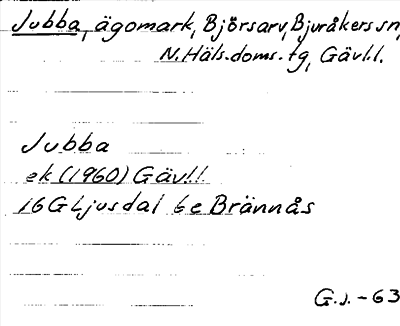 Jubba, ägomark, Björsarv, Bjuråkers sn,
N. Häls. doms. tg, Gävl.l.
Jubba
ek (1960) Gävl.l.
16G Ljusdal 6e Brännås
G.J. -63